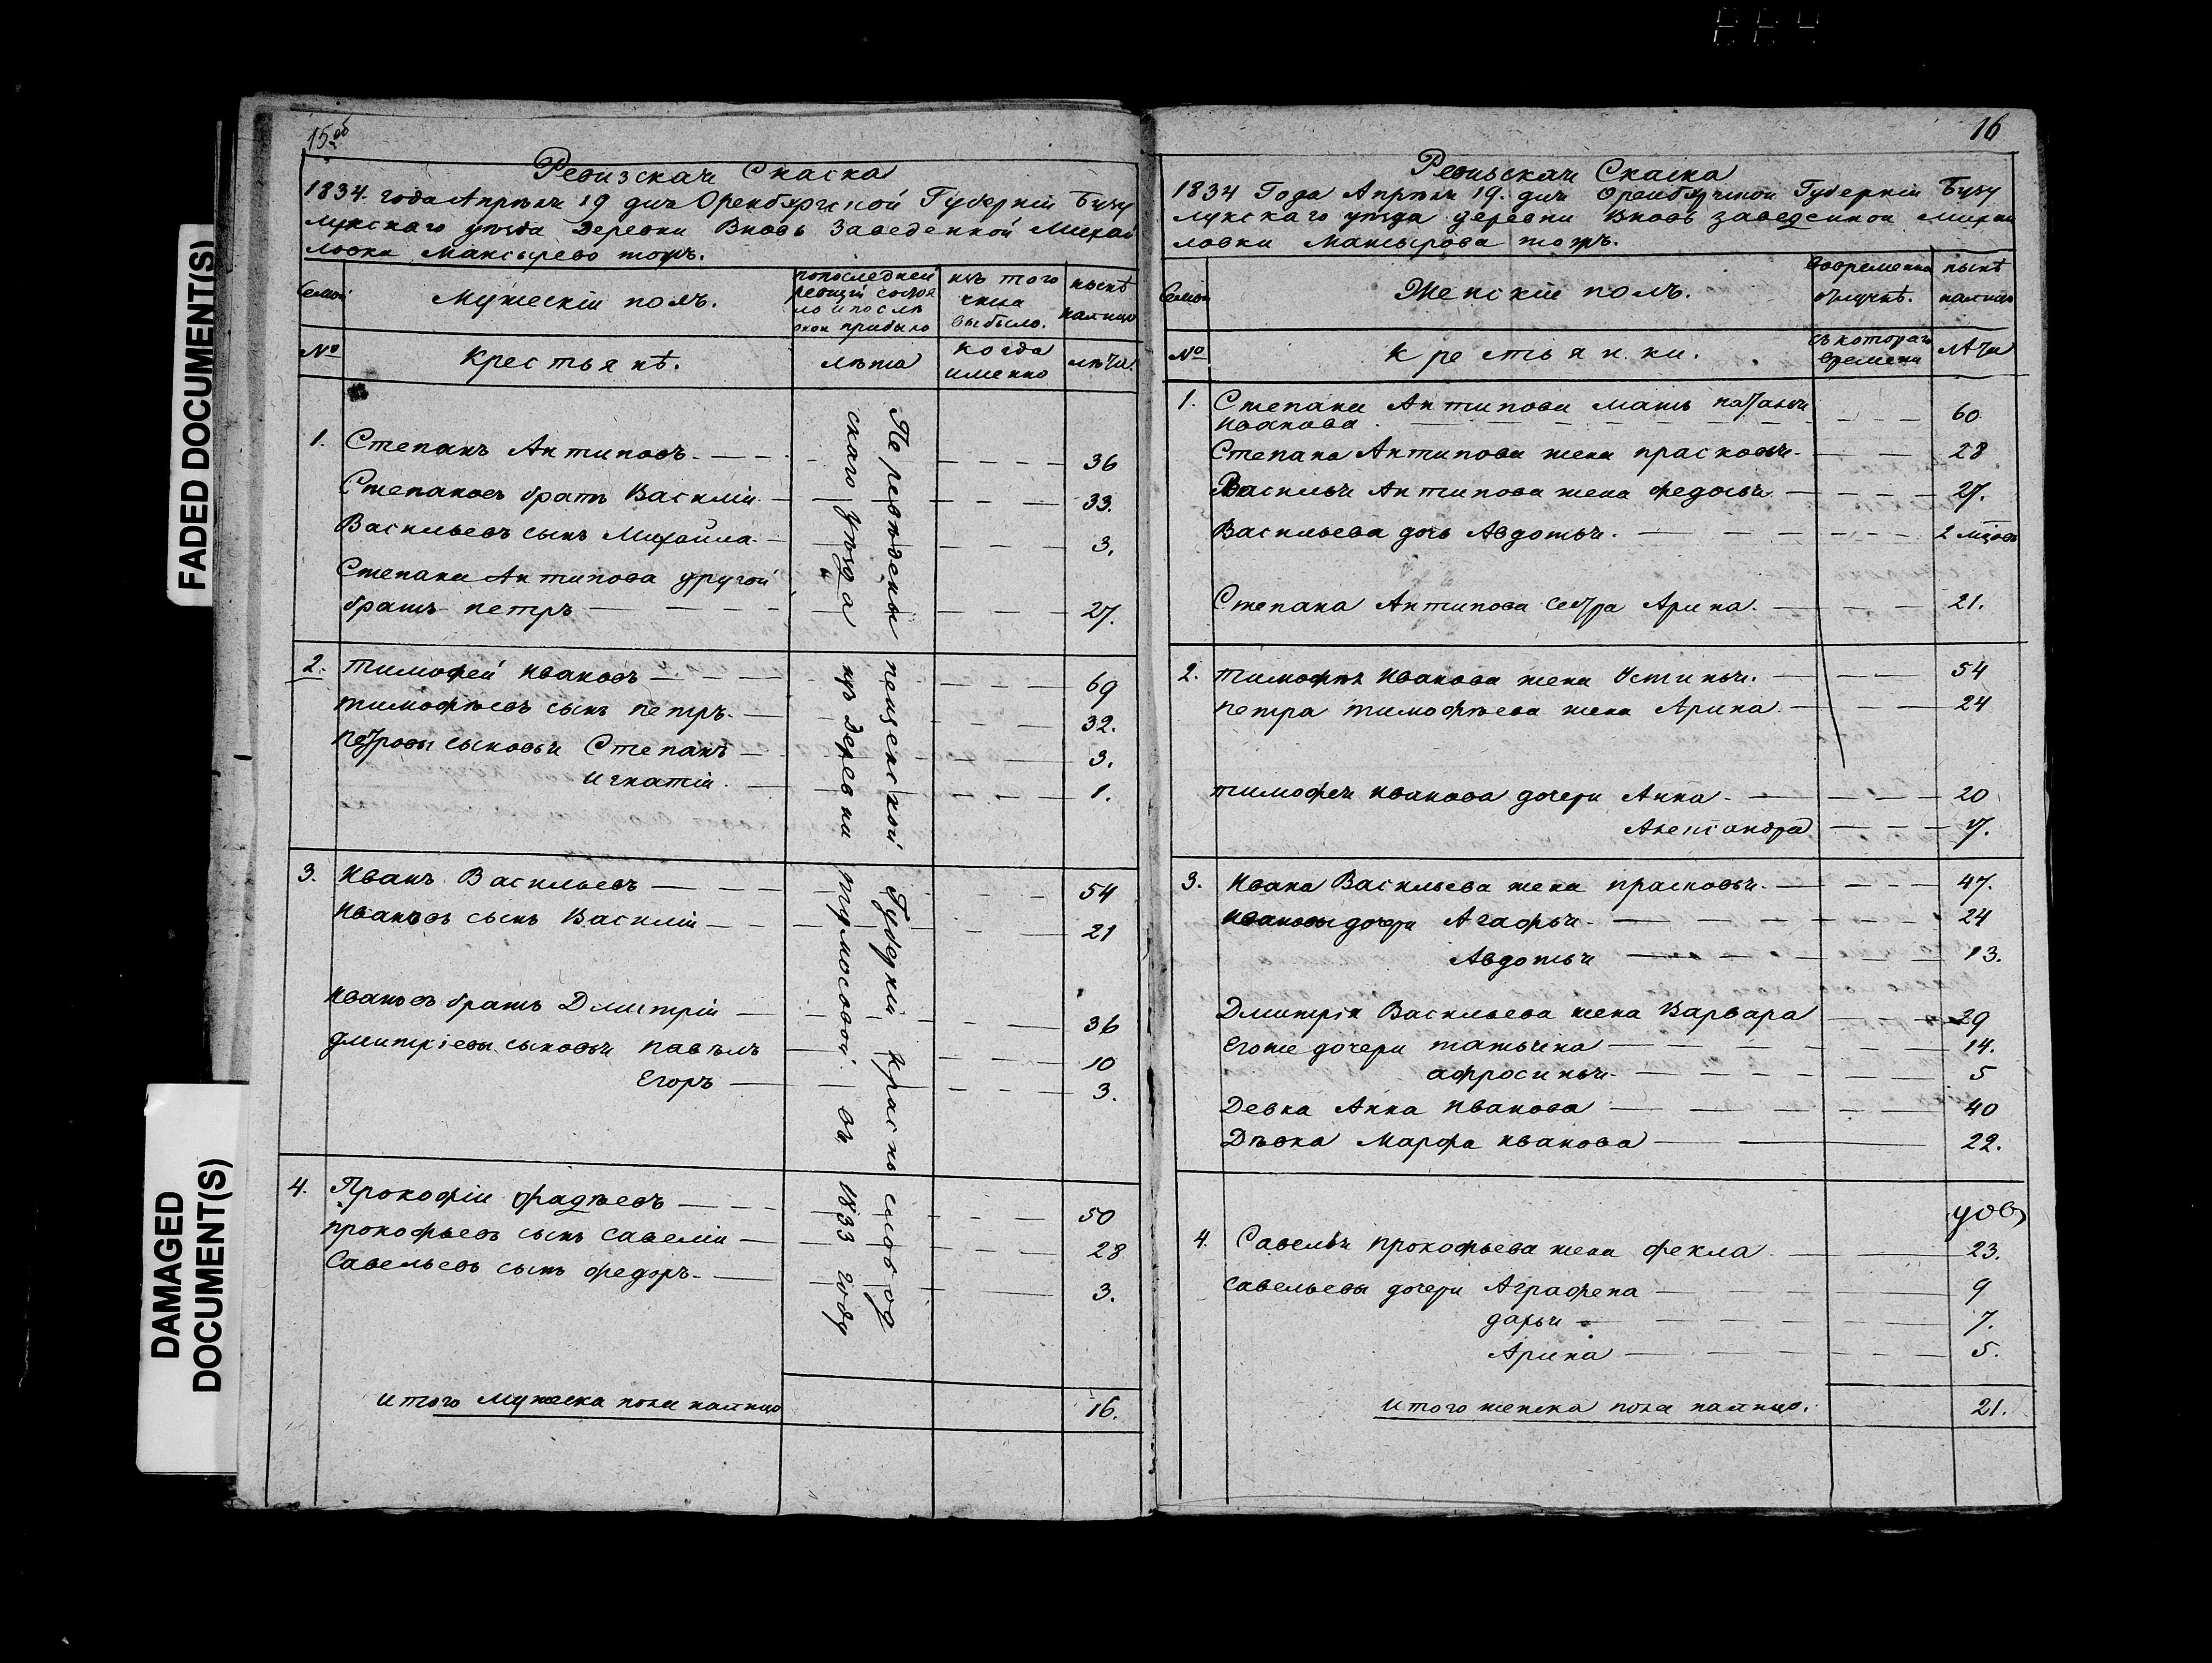 15 об
Ревизская Скаска
1834. года Апрѣля 19 дня Оренбургской Губерніи Бузу
лукскаго уѣзда Деревни Вновь Заведенной Михай
ловки Мансырево тожъ.
Семьи
Мужескій полъ.
попоследней
ревизіи состоя
ло и послѣ
онои прибыло
изъ того
числа
выбыло.
нынѣ
налицо
№
Крестьянѣ.
лѣта
когда
именно
лѣта.
1. Степанъ Антиповъ. 36
Степановъ братъ Василій 33.
Васильевъ сынъ Михайла 3.
Степана Антипова другой
братъ петръ 27.
2. Тимофей Ивановъ 69
тимофѣевъ сынъ петръ. 32.
петровы сыновья Степанъ 3.
Игнатій. 1.
3. Иванъ Васильевъ 54
Ивановъ сынъ Василій 21
Ивановъ братъ Дмитрій 36
Дмитріевы сыновья павѣлъ 10
Егоръ 3.
4. Прокофій фадѣевъ 50
прокофьевъ сынъ Савелій 28
Савельевъ сынъ федоръ. 3.
пензенской Губерніи Красно слобод
скаго уѣзда изъ деревни въ 1833 году
итого мужеска пола налицо 16.
16
Ревизская Скаска
1834 Года Апрѣля 19. дня Оренбургской Губерніи Бузу
лукскаго уѣзда деревни Вновь заведенной михаи
ловки Мансырова тожъ.
Семьи
Женскій полъ.
вовременной
отлучкѣ.
нынѣ
налицо
№
Крестьянки.
съ котораго
времени
лѣта
1. Степана Антипова мать наталья
Иванова. 60
Степана Антипова жена прасковья. 28
Василья Антипова жена федосья 27.
Васильева дочь Авдотья. 2 мѣсяцовъ
Степана Антипова сестра Арина. 21.
2. Тимофѣя Иванова жена Устинья. 54
петра тимофѣева жена Арина. 24
тимофея Иванова дочери Анна. 20
Александра 17.
3. Ивана Васильева жена прасковья. 47.
Ивановы дочери Агафья. 24
Авдотья 13.
Дмитрія Васильева жена Варвара 29
Егоже дочери татьяна 14.
афросинья. 5
Девка Анна Иванова 40
Дѣвка Марфа Иванова 22.
4. Савелья прокофьева жена фекла 23.
Савельевы дочери Аграфена 9
дарья 7.
Арина 5.
итого женска пола налицо. 21.
FADED DOCUMENT(S)
DAMAGED
DOCUMENT(S)